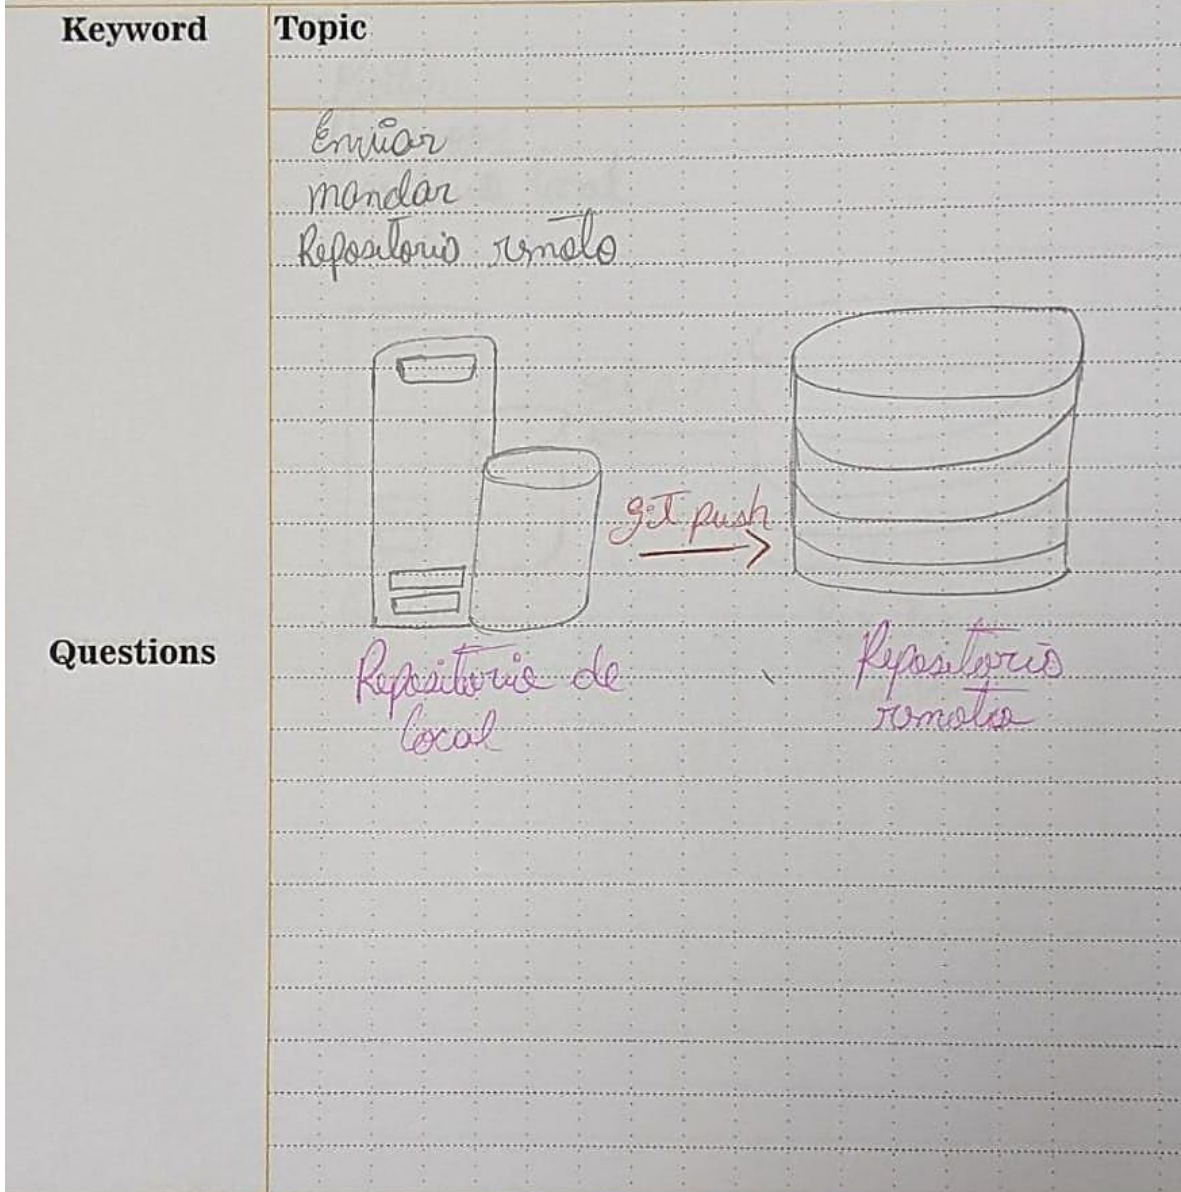 Keyword
Topic
Enviar
mandar
Repositorio remoto
git push
Questions
Repositorio de
local
Repositorio
remoto